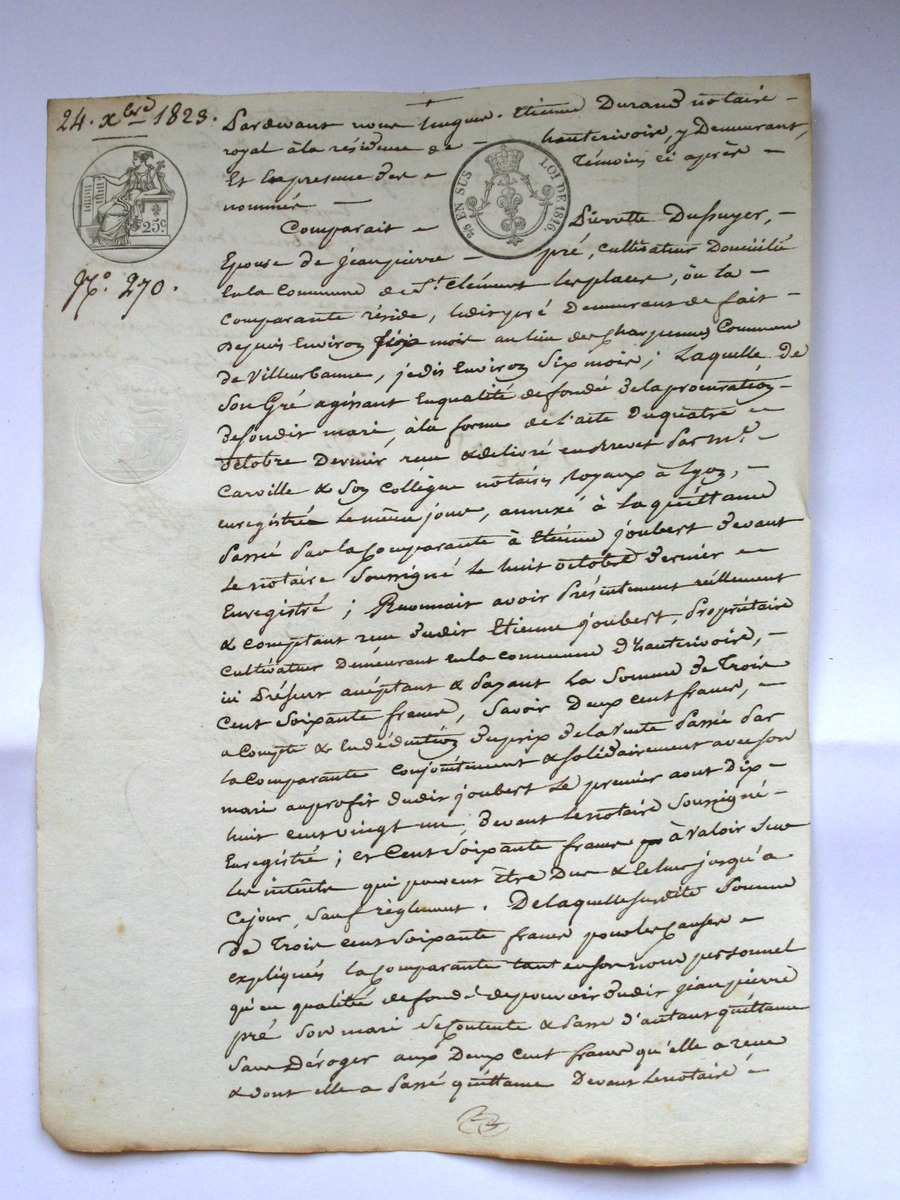 24. xbre 1823.
Pardevant nous Etienne Durand notaire
royal à la résidence de hauterivoire, y Demeurant,
Et En presence des Témoins ci après
nommés
25c
25 EN SUS LOI DE 1816
No. 270.
Comparait Pierrette Dussuyer,
Epouse de jean pierre pré, cultivateur Domicilié
En la Commune de St. Clément les places, où la
comparante réside, ledit pré Demeurant de fait
Depuis Environ six mois au lieu des charpennes Commune
de Villeurbanne, je dis Environ Six mois; Laquelle de
Son Gré agissant En qualité de fondé de la procuration
de sondit mari, à la forme de l'acte du quatre
octobre Dernier reçu & délivré en Brevet Par Me.
Carville & Son Collègue notaires royaux à Lyon,
enregistrée Le même jour, annexé à la quittance
Passée Par la Comparante à Etienne joubert Devant
Le notaire Soussigné Le huit octobre Dernier
Enregistré; Reconnait avoir Présentement réellement
& comptant reçu dudit Etienne joubert, Propriétaire
cultivateur Demeurant en la commune d'hauterivoire,
ici Présent acceptant & Payant La Somme de Trois
Cent Soixante francs, Savoir Deux cent francs,
a Compte & En déduction du prix de la Vente Passée Par
la Comparante conjointement & solidairement avec son
mari au profit dudit joubert Le premier aout Dix
huit cent vingt un Devant Le notaire Soussigné
Enregistré; et Cent Soixante francs à Valoir Sur
Les intérêts qui peuvent Être Dus & Echus jusqu'à
Ce jour, Sauf règlement. De laquelle susdite Somme
De Trois cent Soixante francs pour les Causes
expliquées la Comparante tant en son nom personnel
qu'en qualité de fondé de pouvoir dudit jean pierre
pré Son mari Se Contente & Passe d'autant quittance
Sans Déroger aux Deux cent francs qu'elle a reçu
& dont elle a Passé quittance Devant Le notaire